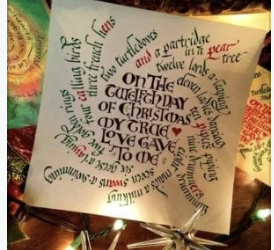 ON THE
TWELFTH DAY
OF CHRISTMAS
MY TRUE
LOVE GAVE
TO ME
a partridge
in a pear
tree
and
two turtledoves
three french hens
four calling birds
five golden rings
six geese a laying
seven swans a swimming
maids a milking
eleven ladies dancing
twelve lords a leaping
pipers piping
drummers